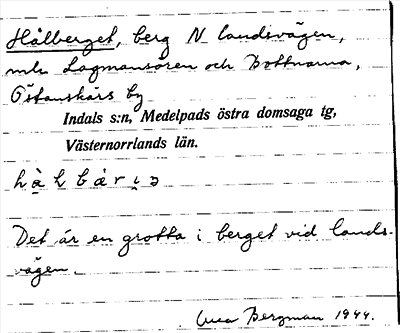 Hålberget, berg N landsvägen,
mln Lagmansören och Bottnarna,
Östanskärs by
Indals s:n, Medelpads östra domsaga tg,
Västernorrlands län.
Det är en grotta i berget vid lands-
vägen.
Bergman 1944.